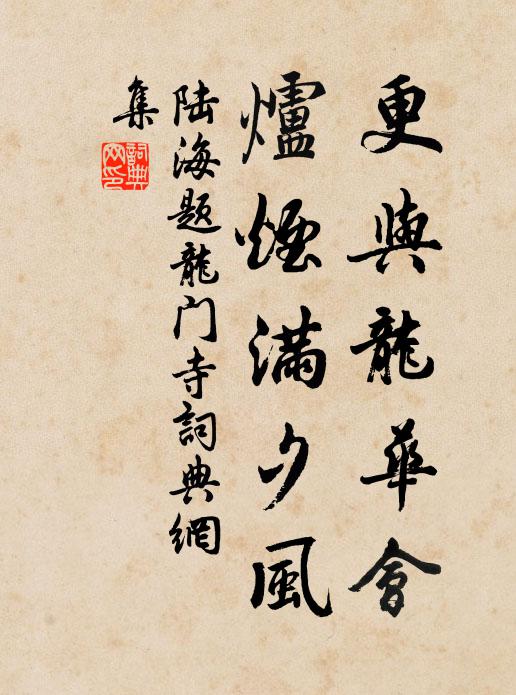 更與龍華會
爐煙滿夕風
陆海题龍门寺詞典網
集
詞典網印